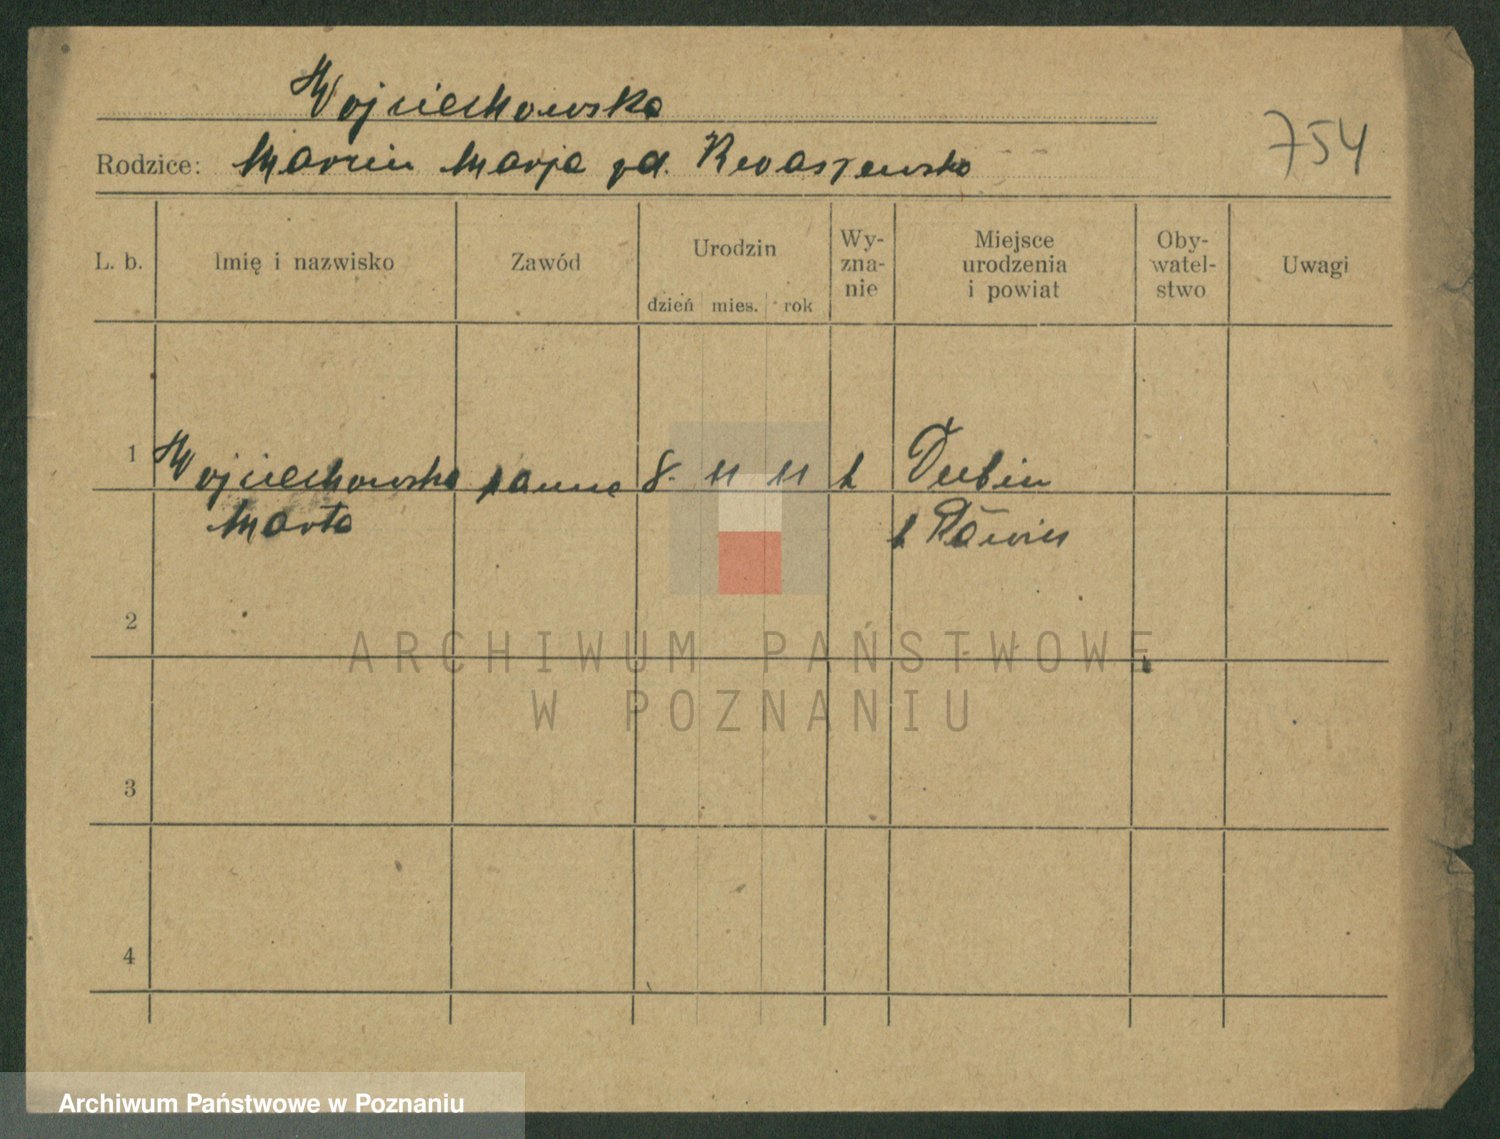 Wojciechowska
754
Rodzice: Marcin Marja zd.
L. b. Imię i nazwisko Zawód Urodzin dzień mies. rok Wy-zna-nie Miejsce urodzenia i powiat Oby-watel-stwo Uwagi
1 Wojciechowska panna 8. 11 11 k Dubin
Marta
2
3
4
ARCHIWUM PAŃSTWOWE
W POZNANIU
Archiwum Państwowe w Poznaniu